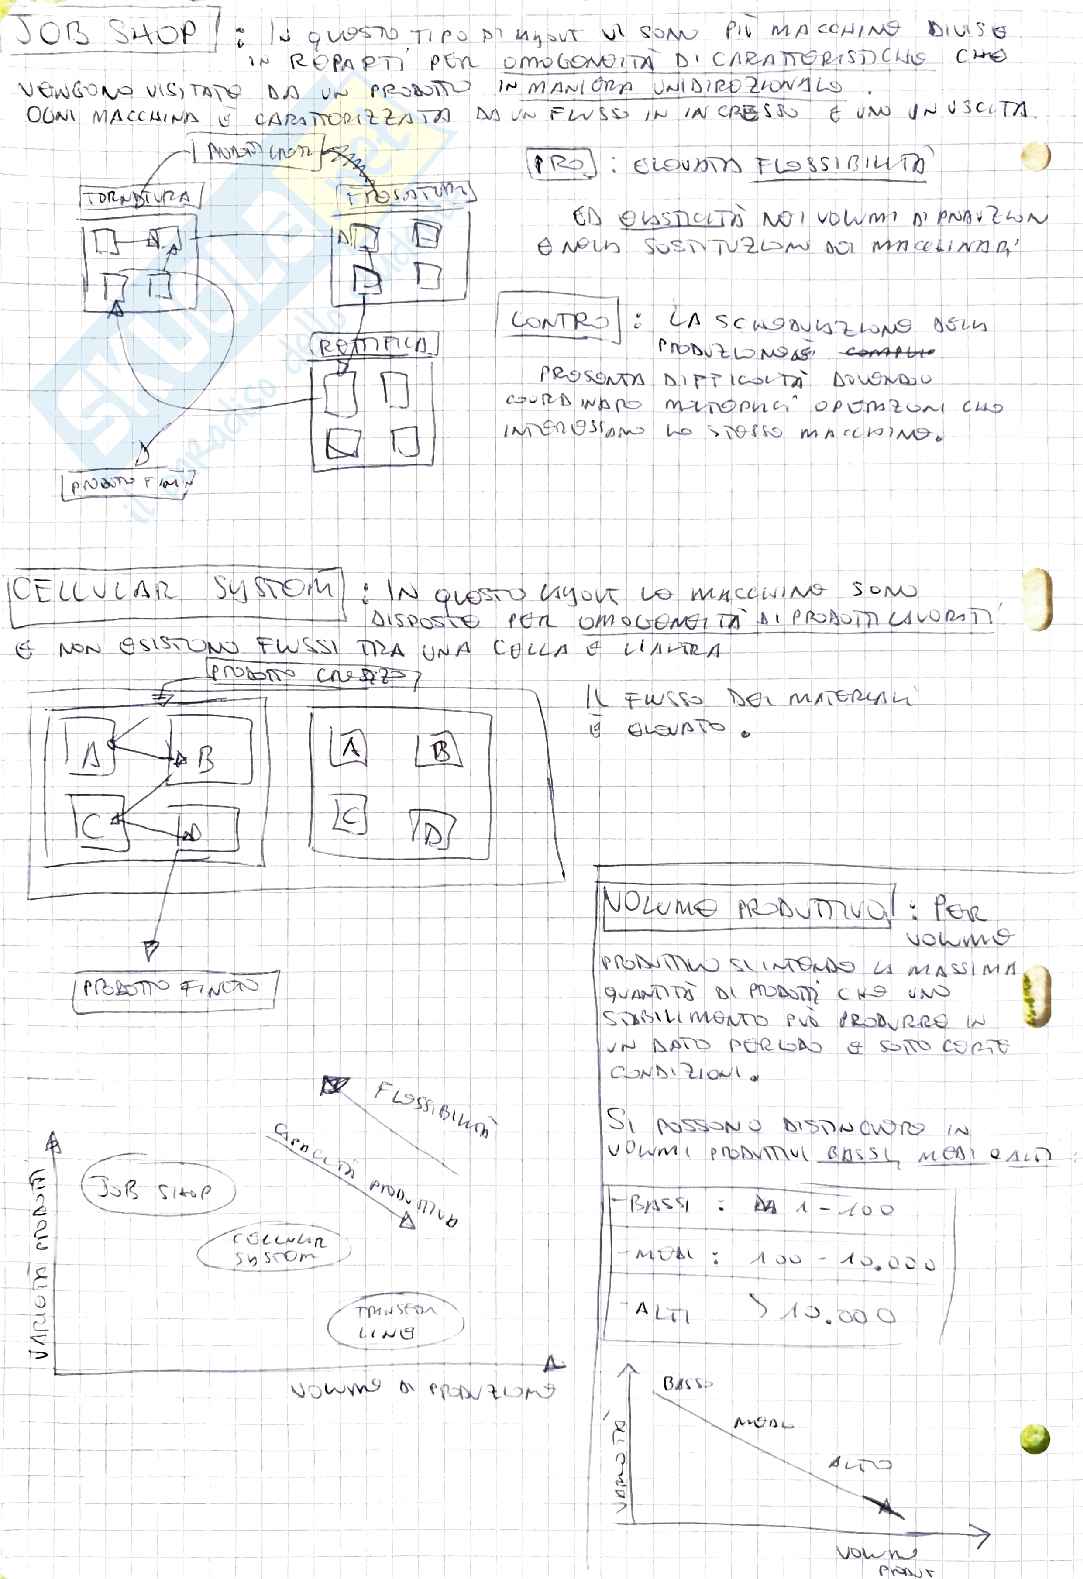 JOB SHOP : IN QUESTO TIPO DI LAYOUT VI SONO PIÙ MACCHINE DIVISE
IN REPARTI PER OMOGENEITÀ DI CARATTERISTICHE CHE
VENGONO VISITATE DA UN PRODOTTO IN MANIERA UNIDIREZIONALE.
OGNI MACCHINA È CARATTERIZZATA DA UN FLUSSO IN INGRESSO E UNO IN USCITA.
TORNITURA
FRESATURA
RETTIFICA
PRODOTTO FINITO
PRO : ELEVATA FLESSIBILITÀ
ED ELASTICITÀ NEI VOLUMI DI PRODUZION
E NELLA SOSTITUZIONE DEI MACCHINARI
CONTRO : LA SCHEDULAZIONE DELLA
PRODUZIONE
PRESENTA DIFFICOLTÀ DOVENDO
COORDINARE MOLTEPLICI OPERAZIONI CHE
INTERESSANO LE STESSE MACCHINE.
CELLULAR SYSTEM : IN QUESTO LAYOUT LE MACCHINE SONO
DISPOSTE PER OMOGENEITÀ DI PRODOTTI LAVORATI
E NON ESISTONO FLUSSI TRA UNA CELLA E L'ALTRA
PRODOTTO GREZZO
A B
C D
A B
C D
PRODOTTO FINITO
IL FLUSSO DEI MATERIALI
È ELEVATO.
VOLUME PRODUTTIVO : PER
VOLUME
PRODUTTIVO SI INTENDE LA MASSIMA
QUANTITÀ DI PRODOTTI CHE UNO
STABILIMENTO PUÒ PRODURRE IN
UN DATO PERIODO E SOTTO CERTE
CONDIZIONI.
SI POSSONO DISTINGUERE IN
VOLUMI PRODUTTIVI BASSI, MEDI E ALTI:
- BASSI : DA 1 - 100
- MEDI : 100 - 10.000
- ALTI > 10.000
FLESSIBILITÀ
CAPACITÀ PRODUTTIVA
VARIETÀ PRODOTTI
JOB SHOP
CELLULAR
SYSTEM
TRANSFER
LINE
VOLUME DI PRODUZIONE
VARIETÀ
BASSO
MEDI
ALTO
VOLUME
PRODUT
SKUOLA.net
il paradiso dello